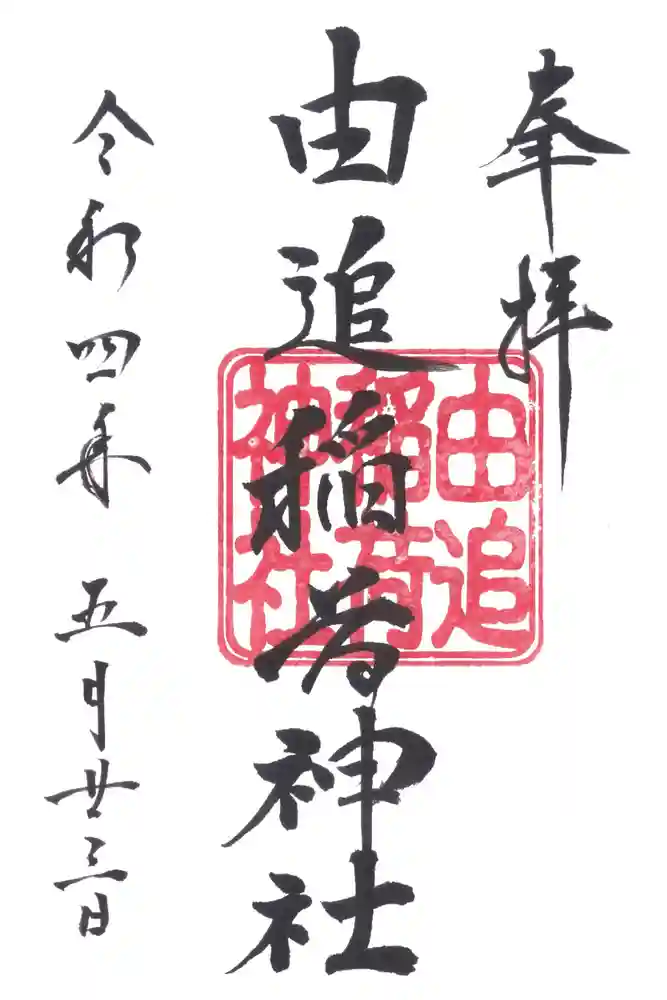 奉拝
由追稲荷神社
由追稲荷神社
令和四年 五月廿三日